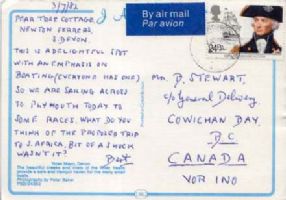 3/7/82
PEAR TREE COTTAGE,
NEWTON FERRERS,
S. DEVON.
THIS IS A DELIGHTFUL SPOT
WITH AN EMPHASIS ON
BOATING (EVERYONE HAS ONE)
SO WE ARE SAILING ACROSS
TO PLYMOUTH TODAY TO
SOME RACES. WHAT DO YOU
THINK OF THE PROPOSED TRIP
TO S. AFRICA. BIT OF A SHOCK
WASN'T IT?
By air mail
Par avion
MR. P. STEWART.
c/o General Delivery
COWICHAN BAY.
BC
CANADA
VOR INO
Noss Mayo, Devon
The beautiful creeks and inlets of the River Yealm
provide a safe and tranquil haven for the many small
boats.
Photograph by Peter Baker